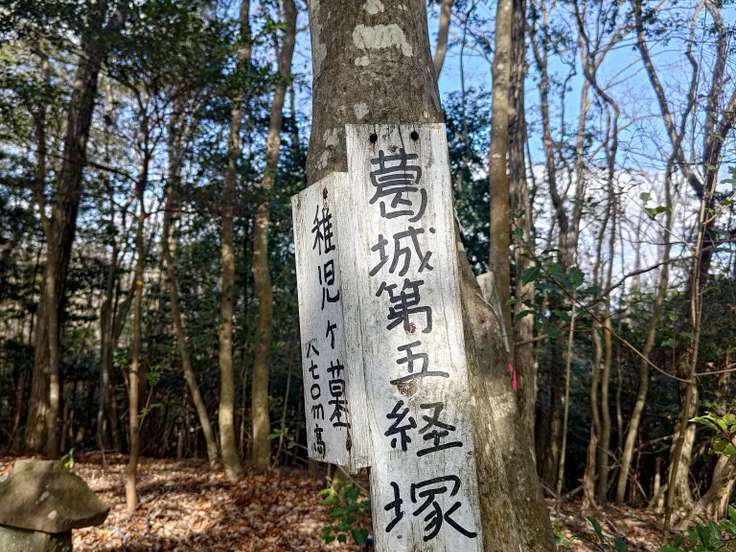 葛城第五経塚
稚児ヶ墓
八七〇m高